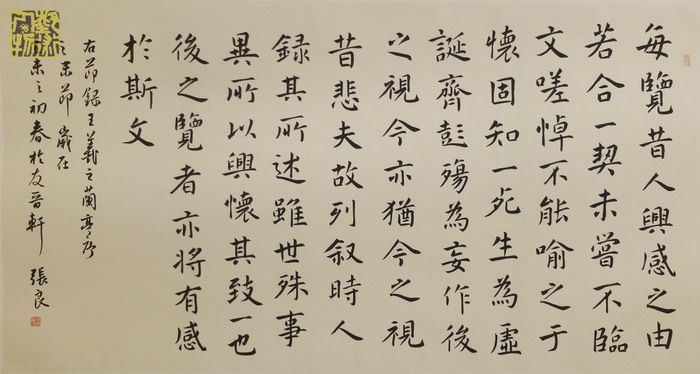 每覽昔人興感之由
若合一契未嘗不臨
文嗟悼不能喻之于
懷固知一死生為虛
誕齊彭殤為妄作後
之視今亦猶今之視
昔悲夫故列叙時人
録其所述雖世殊事
異所以興懷其致一也
後之覽者亦将有感
於斯文
右節録王羲之蘭亭序
之末節歲在
未之初春於友晉軒 張良